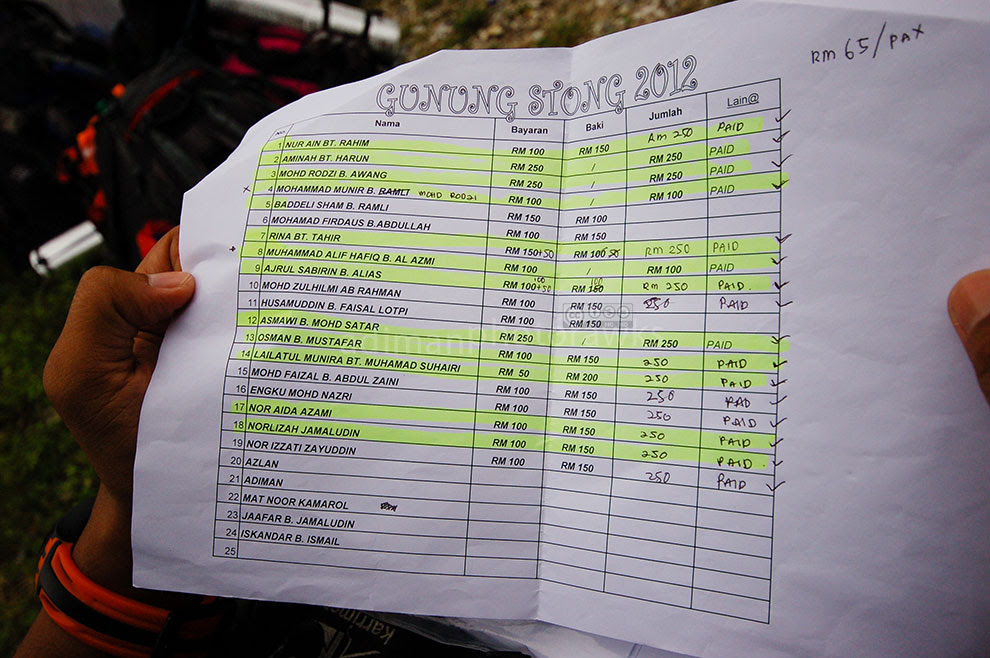 RM 65/PAX
GUNUNG STONG 2012
Nama Bayaran Baki Jumlah Lain@
1 NUR AIN BT. RAHIM RM 100 RM 150 Rm 250 PAID
2 AMINAH BT. HARUN RM 250 / RM 250 PAID
3 MOHD RODZI B. AWANG RM 250 / RM 250 PAID
4 MOHAMMAD MUNIR B. RAMLI MOHD RODZI RM 100 / RM 100 PAID
5 BADDELI SHAM B. RAMLI RM 150 RM 100
6 MOHAMAD FIRDAUS B.ABDULLAH RM 100 RM 150
7 RINA BT. TAHIR RM 150+50 RM 100 50 RM 250 PAID
8 MUHAMMAD ALIF HAFIQ B. AL AZMI RM 100 / RM 100 PAID
9 AJRUL SABIRIN B. ALIAS RM 100+50 100 RM 150 100 Rm 250 PAID.
10 MOHD ZULHILMI AB RAHMAN RM 100 RM 150 250 PAID
11 HUSAMUDDIN B. FAISAL LOTPI RM 100 RM 150
12 ASMAWI B. MOHD SATAR RM 250 / RM 250 PAID
13 OSMAN B. MUSTAFAR RM 100 RM 150 250 PAID
14 LAILATUL MUNIRA BT. MUHAMAD SUHAIRI RM 50 RM 200 250 PAID
15 MOHD FAIZAL B. ABDUL ZAINI RM 100 RM 150 250 PAID
16 ENGKU MOHD NAZRI RM 100 RM 150 250 PAID
17 NOR AIDA AZAMI RM 100 RM 150 250 PAID
18 NORLIZAH JAMALUDIN RM 100 RM 150 250 PAID.
19 NOR IZZATI ZAYUDDIN RM 100 RM 150 250 PAID
20 AZLAN
21 ADIMAN
22 MAT NOOR KAMAROL
23 JAAFAR B. JAMALUDIN
24 ISKANDAR B. ISMAIL
25
karrimor